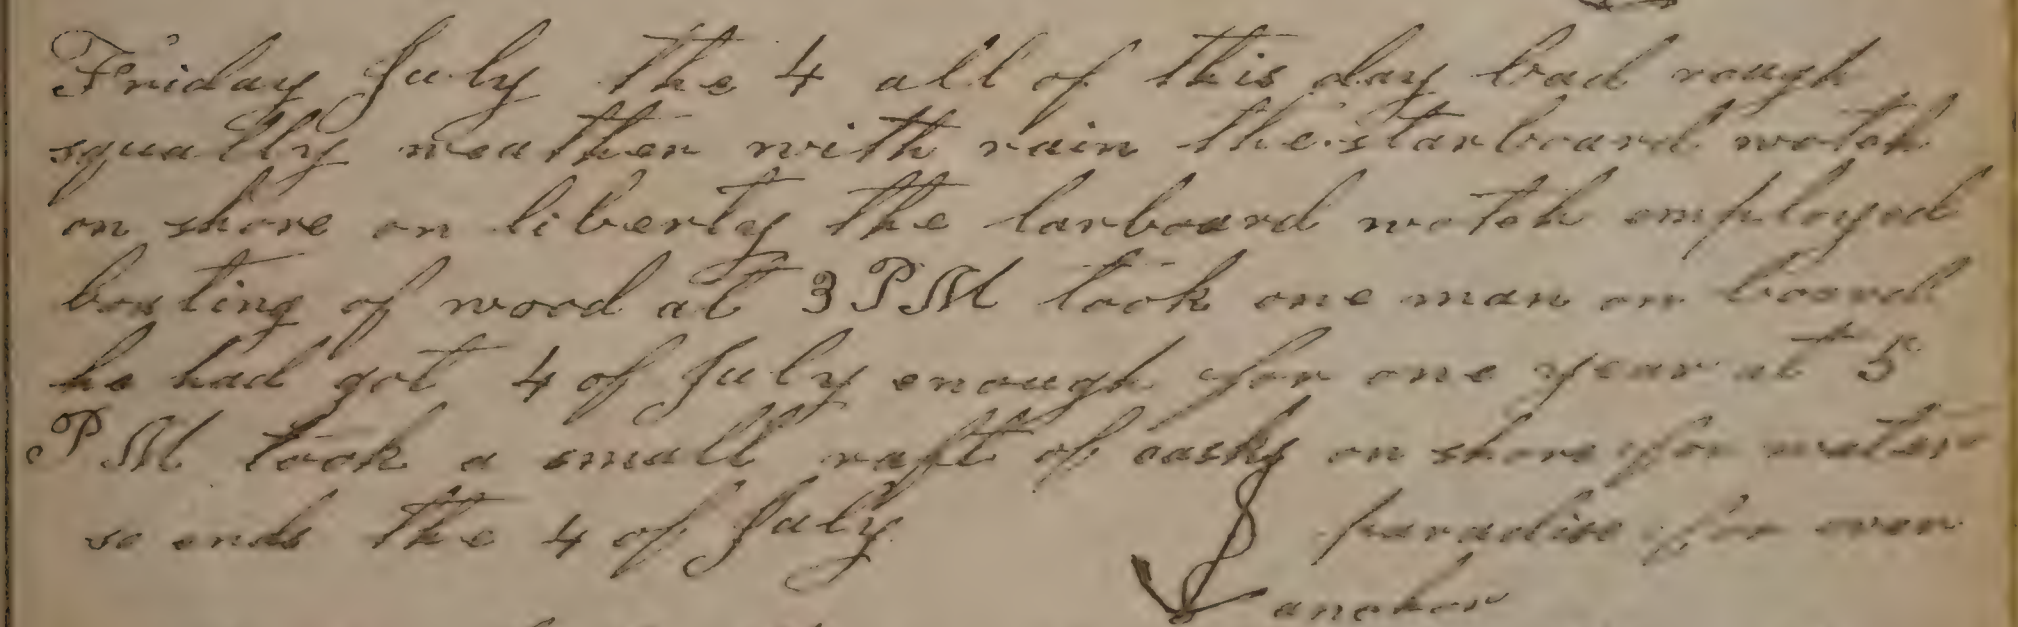 Friday July the 4 all of this day bad rough
squally weather with rain the starboard watch
on shore on liberty the larboard watch employed
boating of wood at 3 PM took one man on board
he had got 4 of July enough for one year at 5
PM took a small raft of casks on shore for water
so ends the 4 of July paradise for ever
anchor